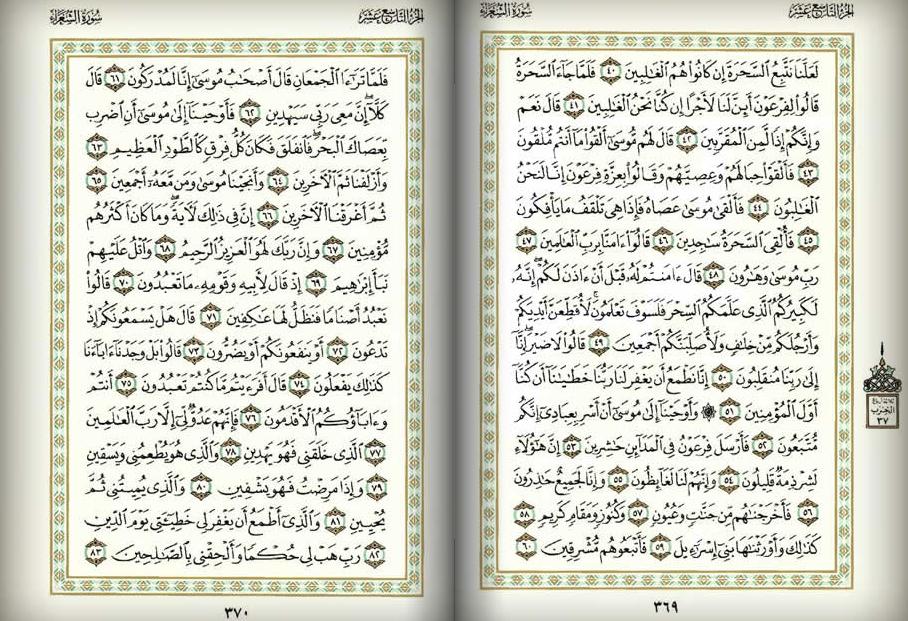 الجزء التاسع عشر سورة الشعراء
لَعَلَّنَا نَتَّبِعُ السَّحَرَةَ إِن كَانُوا۟ هُمُ الْغَـٰلِبِينَ ٤٠ فَلَمَّا جَآءَ السَّحَرَةُ
قَالُوا۟ لِفِرْعَوْنَ أَئِنَّ لَنَا لَأَجْرًا إِن كُنَّا نَحْنُ الْغَـٰلِبِينَ ٤١ قَالَ نَعَمْ
وَإِنَّكُمْ إِذًا لَّمِنَ الْمُقَرَّبِينَ ٤٢ قَالَ لَهُم مُّوسَىٰٓ أَلْقُوا۟ مَآ أَنتُم مُّلْقُونَ
٤٣ فَأَلْقَوْا۟ حِبَالَهُمْ وَعِصِيَّهُمْ وَقَالُوا۟ بِعِزَّةِ فِرْعَوْنَ إِنَّا لَنَحْنُ
الْغَـٰلِبُونَ ٤٤ فَأَلْقَىٰ مُوسَىٰ عَصَاهُ فَإِذَا هِىَ تَلْقَفُ مَا يَأْفِكُونَ
٤٥ فَأُلْقِىَ السَّحَرَةُ سَـٰجِدِينَ ٤٦ قَالُوٓا۟ ءَامَنَّا بِرَبِّ الْعَـٰلَمِينَ ٤٧
رَبِّ مُوسَىٰ وَهَـٰرُونَ ٤٨ قَالَ ءَامَنتُمْ لَهُۥ قَبْلَ أَنْ ءَاذَنَ لَكُمْ ۖ إِنَّهُۥ
لَكَبِيرُكُمُ الَّذِى عَلَّمَكُمُ السِّحْرَ فَلَسَوْفَ تَعْلَمُونَ ۚ لَأُقَطِّعَنَّ أَيْدِيَكُمْ
وَأَرْجُلَكُم مِّنْ خِلَـٰفٍ وَلَأُصَلِّبَنَّكُمْ أَجْمَعِينَ ٤٩ قَالُوا۟ لَا ضَيْرَ ۖ إِنَّآ
إِلَىٰ رَبِّنَا مُنقَلِبُونَ ٥٠ إِنَّا نَطْمَعُ أَن يَغْفِرَ لَنَا رَبُّنَا خَطَـٰيَـٰنَآ أَن كُنَّآ
أَوَّلَ الْمُؤْمِنِينَ ٥١ ۞ وَأَوْحَيْنَآ إِلَىٰ مُوسَىٰٓ أَنْ أَسْرِ بِعِبَادِىٓ إِنَّكُم
مُّتَّبَعُونَ ٥٢ فَأَرْسَلَ فِرْعَوْنُ فِى الْمَدَآئِنِ حَـٰشِرِينَ ٥٣ إِنَّ هَـٰٓؤُلَآءِ
لَشِرْذِمَةٌ قَلِيلُونَ ٥٤ وَإِنَّهُمْ لَنَا لَغَآئِظُونَ ٥٥ وَإِنَّا لَجَمِيعٌ حَـٰذِرُونَ
٥٦ فَأَخْرَجْنَـٰهُم مِّن جَنَّـٰتٍ وَعُيُونٍ ٥٧ وَكُنُوزٍ وَمَقَامٍ كَرِيمٍ ٥٨
كَذَٰلِكَ وَأَوْرَثْنَـٰهَا بَنِىٓ إِسْرَٰٓءِيلَ ٥٩ فَأَتْبَعُوهُم مُّشْرِقِينَ ٦٠
الحزب
٣٧
٣٦٩
الجزء التاسع عشر سورة الشعراء
فَلَمَّا تَرَٰٓءَا الْجَمْعَانِ قَالَ أَصْحَـٰبُ مُوسَىٰٓ إِنَّا لَمُدْرَكُونَ ٦١ قَالَ
كَلَّآ ۖ إِنَّ مَعِىَ رَبِّى سَيَهْدِينِ ٦٢ فَأَوْحَيْنَآ إِلَىٰ مُوسَىٰٓ أَنِ اضْرِب
بِّعَصَاكَ الْبَحْرَ ۖ فَانفَلَقَ فَكَانَ كُلُّ فِرْقٍ كَالطَّوْدِ الْعَظِيمِ ٦٣
وَأَزْلَفْنَا ثَمَّ الْـَٔاخَرِينَ ٦٤ وَأَنجَيْنَا مُوسَىٰ وَمَن مَّعَهُۥٓ أَجْمَعِينَ ٦٥
ثُمَّ أَغْرَقْنَا الْـَٔاخَرِينَ ٦٦ إِنَّ فِى ذَٰلِكَ لَـَٔايَةً ۖ وَمَا كَانَ أَكْثَرُهُم
مُّؤْمِنِينَ ٦٧ وَإِنَّ رَبَّكَ لَهُوَ الْعَزِيزُ الرَّحِيمُ ٦٨ وَاتْلُ عَلَيْهِمْ
نَبَأَ إِبْرَٰهِيمَ ٦٩ إِذْ قَالَ لِأَبِيهِ وَقَوْمِهِۦ مَا تَعْبُدُونَ ٧٠ قَالُوا۟
نَعْبُدُ أَصْنَامًا فَنَظَلُّ لَهَا عَـٰكِفِينَ ٧١ قَالَ هَلْ يَسْمَعُونَكُمْ إِذْ
تَدْعُونَ ٧٢ أَوْ يَنفَعُونَكُمْ أَوْ يَضُرُّونَ ٧٣ قَالُوا۟ بَلْ وَجَدْنَآ ءَابَآءَنَا
كَذَٰلِكَ يَفْعَلُونَ ٧٤ قَالَ أَفَرَءَيْتُم مَّا كُنتُمْ تَعْبُدُونَ ٧٥ أَنتُمْ
وَءَابَآؤُكُمُ الْأَقْدَمُونَ ٧٦ فَإِنَّهُمْ عَدُوٌّ لِّىٓ إِلَّا رَبَّ الْعَـٰلَمِينَ
٧٧ الَّذِى خَلَقَنِى فَهُوَ يَهْدِينِ ٧٨ وَالَّذِى هُوَ يُطْعِمُنِى وَيَسْقِينِ
٧٩ وَإِذَا مَرِضْتُ فَهُوَ يَشْفِينِ ٨٠ وَالَّذِى يُمِيتُنِى ثُمَّ
يُحْيِينِ ٨١ وَالَّذِىٓ أَطْمَعُ أَن يَغْفِرَ لِى خَطِيٓـَٔتِى يَوْمَ الدِّينِ
٨٢ رَبِّ هَبْ لِى حُكْمًا وَأَلْحِقْنِى بِالصَّـٰلِحِينَ ٨٣
٣٧٠